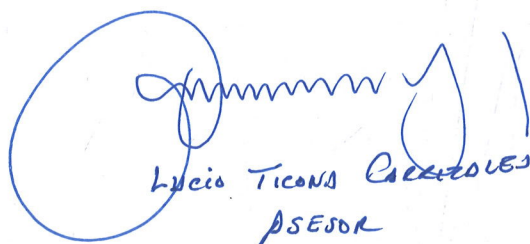 Lucio Ticona Carrizales
Asesor